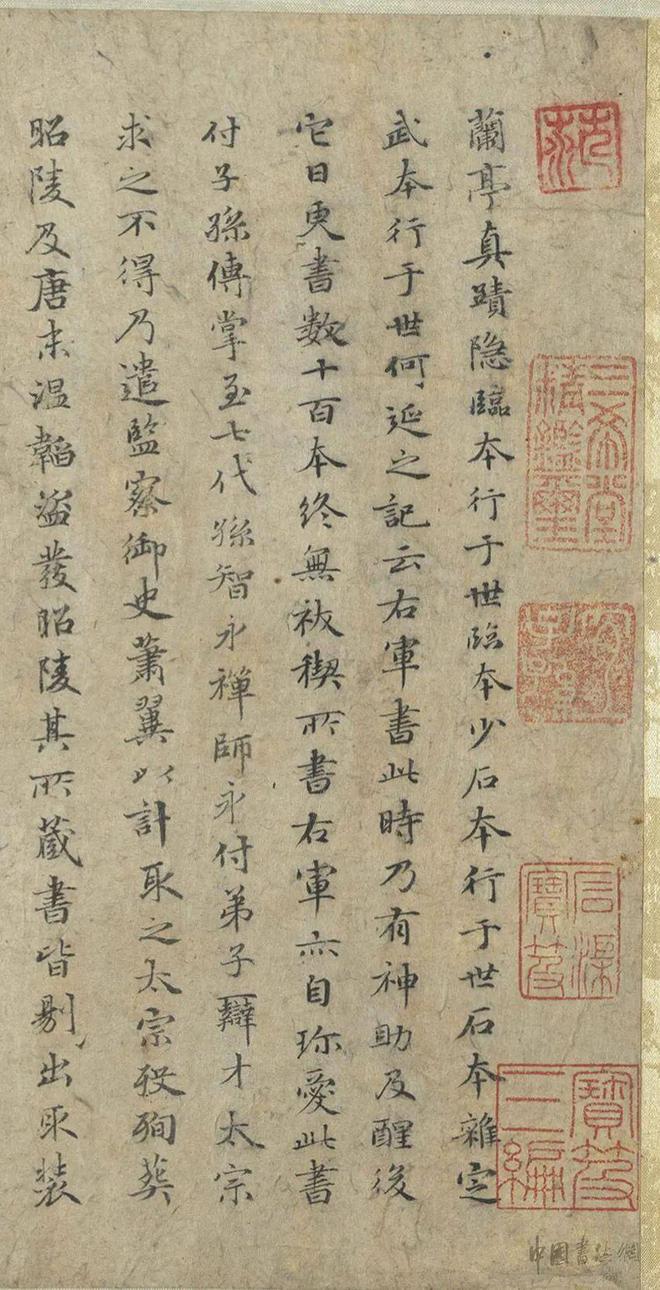 三希堂精鑑璽
宜子孫
石渠寶笈
寶笈三編
蘭亭真蹟隐臨本行于世臨本少石本行于世石本雜定
武本行于世何延之記云右軍書此時乃有神助及醒後
它日更書数十百本終無祓禊所書右軍亦自珎愛此書
付子孫傳掌至七代孫智永禪師永付弟子辯才太宗
求之不得乃遣監察御史蕭翼以計取之太宗歿殉葬
昭陵及唐末温韜盗發昭陵其所蔵書皆剔出取装
中國書法網